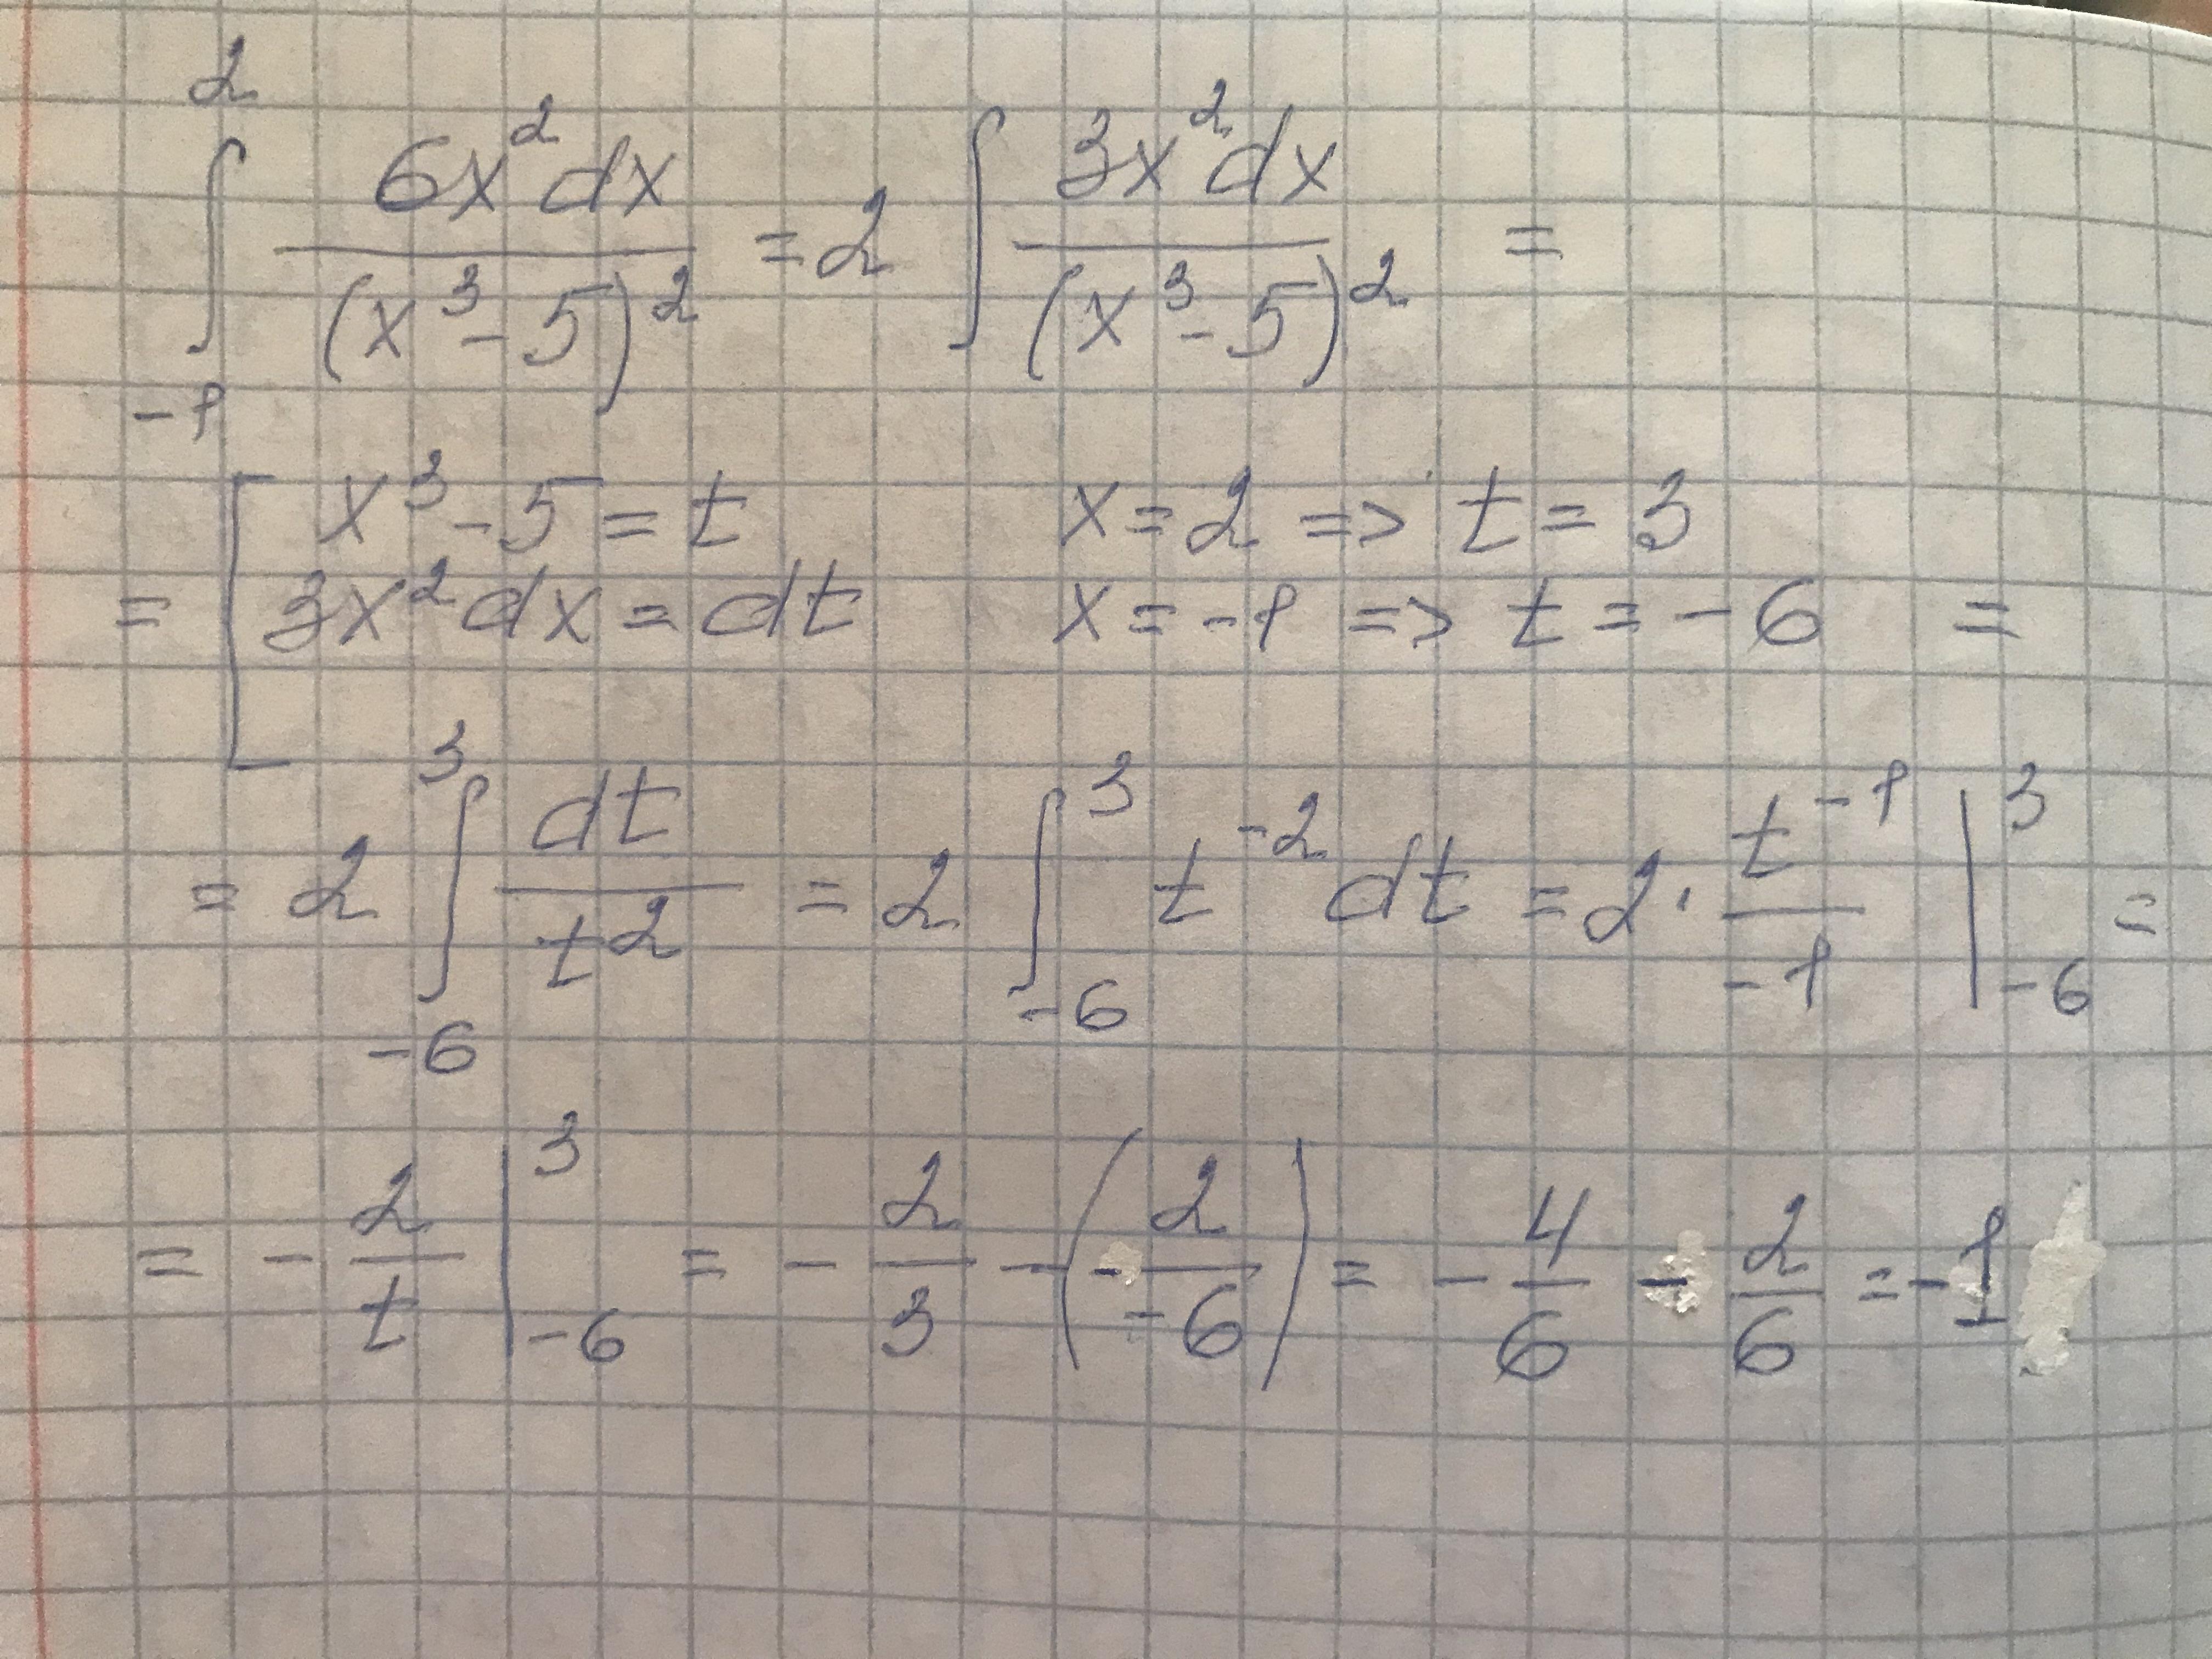 ∫_{-1}^{2} 6x²dx/(x³-5)² = 2 ∫ 3x²dx/(x³-5)² =
= [ x³-5=t x=2 => t=3
3x²dx=dt x=-1 => t=-6 =
= 2 ∫_{-6}^{3} dt/t² = 2 ∫_{-6}^{3} t^{-2} dt = 2· t^{-1}/-1 |_{-6}^{3} =
= -2/t |_{-6}^{3} = -2/3 - (-2/-6) = -4/6 - 2/6 = -1